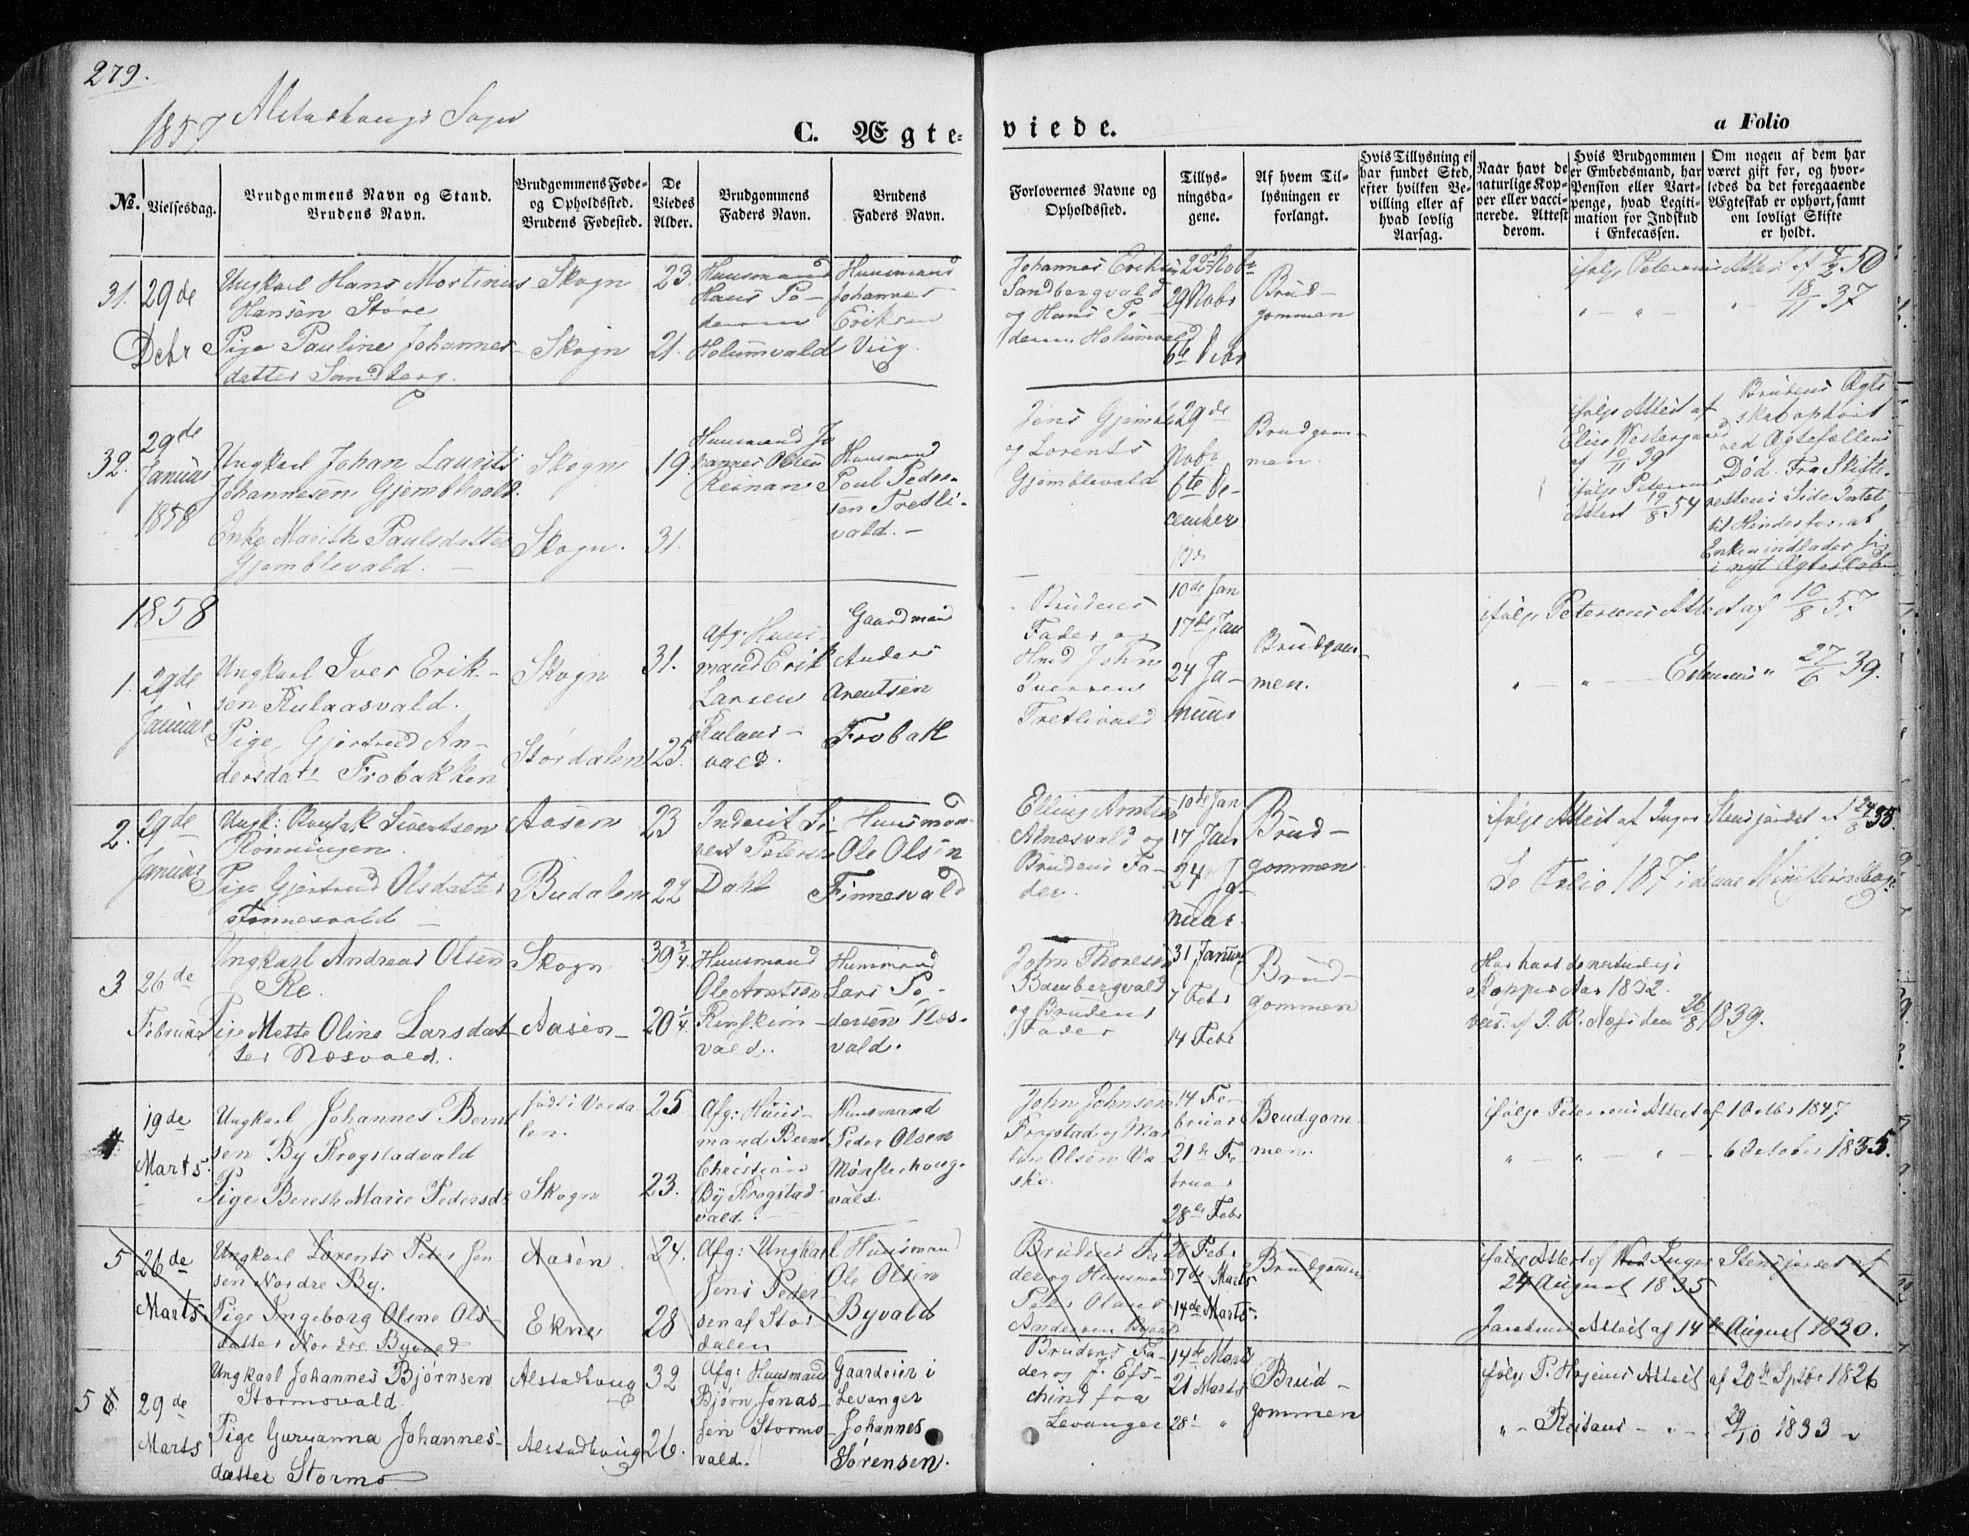 279.
1857 Alstadhougs Sogn
C. Ægte=
viede.
a Folio
No.
Vielsesdag.
Brudgommens Navn og Stand.
Brudens Navn.
Brudgommens Føde-
og Opholdssted.
Brudens Fødested.
De
Viedes
Alder.
Brudgommens
Faders Navn.
Brudens
Faders Navn.
Forlovernes Navne og
Opholdssted.
Tillys-
ningsda-
gene.
Af hvem Til-
lysningen er
forlangt.
Hvis Tillysning ei
har fundet Sted,
efter hvilken Be-
villing eller af
hvad lovlig
Aarsag.
Naar havt de
naturlige Kop-
per eller vacci-
nerede. Attest
derom.
Hvis Brudgommen
er Embedsmand, har
Pension eller Vart-
penge, hvad Legiti-
mation for Indskud
i Enkecassen.
Om nogen af dem har
været gift for, og hvor-
ledes da det foregaaende
Ægteskab er ophørt, samt
om lovligt Skifte
er holdt.
31.
29de
Debr
Ungkarl Hans Mortinus
Hansen Støre
Pige Pauline Johannes-
datter Sandberg.
Skogn
Skogn
23.
21.
Huusmand
Hans Pe-
dersen
Holumvald
Huusmand
Johannes
Eriksen
Viig.
Johannes Eriksen
Sandbergvald
og Hans Pe-
dersen Holumvald
22 Novbr
29 Nobr
6te Debr
Brud-
gommen
ifølge Petersens Attest af 4/2 30
" - " - " 18/11 37
32.
29de
Januar
1858
Ungkarl Johan Laurits
Johannesen Gjemblevald.
Enke Marith Paulsdatter
Gjemblevald.
Skogn
Skogn.
19.
31.
Huusmand Jo
hannes Olsen
Reinan
Huusmand
Poul Peder-
sen Tretli-
vald.
Jens Gjemble
og Lorents
Gjemblevald
29de
Nobr
6te De-
cember
Brudgom-
men.
ifølge Attest af
Elise Westergaard
af 10/11 39
ifølge Petersens
Attest 19/8 54
Brudens Ægte
skab ophørt
ved Ægtefællens
Død. Fra Skifte-
rettens Side Intet
til Hinder for at
Enken indlader sig
i nyt Ægteskab
1858
1.
29de
Januar
Ungkarl Iver Erik-
sen Rulaasvald.
Pige Gjertrud An-
dersdatr Frobakken
Skogn
Størdalen
31.
25.
Afg: Huus-
mand Erik
Larsen
Rulaas-
vald.
Gaardmand
Anders
Arentsen
Frobak
Brudens
Fader og
Hmd John
Iversen
Tretlivald
10de Jan
17de Jan
24 Ja-
nuar
Brudgom-
men.
ifølge Petersens Attest af 10/8 57.
" - " - " 27/6 39.
2.
29de
Januar
Ungk: Sivertsen
Rønningen.
Pige Gjertrud Olsdatter
Finnesvald
Aasen
Budalen
23
22
Inderst Si-
vert Petersen
Dahl
Huusmand
Ole Olsen
Finnesvald
Elling Arntsen
Alnæsvald og
Brudens Fa-
der.
10de Jan
17 Jan
24 Ja-
nuar.
Brud-
gommen
ifølge Attest af Inger Stensjordet af 24/8 35.
Se Folio 187 i denne Ministerialbog
3
26de
Februar
Ungkarl Andreas Olsen
Re.
Pige Mette Oline Larsdat
ter Næsvald.
Skogn
Aasen
39 3/4
20 1/4
Huusmand
Ole Arntsen
Rinskim-
vald.
Huusmand
Lars Pe-
dersen Næs-
vald.
John Thoresen
Bambergvald
og Brudens
Fader
31 Januar
7 Febr
14 Febr
Brud-
gommen
Har havt de naturlige
Kopper Aar 1832.
Vacc: af P. R. Næss den 26/8 1839.
4
19de
Marts.
Ungkarl Johannes Bernt
sen By Krogstadvald
Pige Bereth Marie Pedersdr
født i Værda
len.
Skogn
25
23.
Afg: Huus-
mand Bernt
Christian
By Krogstad-
vald.
Huusmand
Peder Olsen
Mønsterhoug-
vald.
John Johnsen
Krogstad og Mar
tin Olsen Va
ske.
14 Fe-
bruar
21de Fe
bruar
28de Febr
Brudgom
men.
ifølge Petersens Attest af 1 Octbr 1847
" - " - " - 6 October 1835.
5
26de
Marts
Ungkarl Lorents Peter Jen
sen Nordre By.
Pige Ingeborg Oline Ols-
datter Nordre Byvald
Aasen
Ekne
24.
28
Afg: Ungkarl
Jens Peder-
sen af Stør
dalen
Huusmand
Ole Olsen
Byvald
Brudens Fa
der og Huusmand
Peter Olaus
Andersen Byvald
28 Febr
7de Marts
14de Marts.
Brudgommen
ifølge Attest af Inger Stensjordet af
24 August 1835
Jacobsens Attest af 14de August 1830.
5
29de
Marts
Ungkarl Johannes Bjørnsen
Stormovald.
Pige Gurianna Johannes-
datter Stormo
Alstadhoug
Alstadhoug
32
26.
Afg: Huusmand
Bjørn Jonas-
sen Stormo-
vald.
Gaardeier i
Levanger
Johannes
Sørensen.
Brudens Fa-
der og J. Efs-
chind fra
Levanger
14de Marts
21 Marts
28 "
Brud-
gommen
ifølge P. Høyems Attest af 20de Sptbr 1826
" - Reitans - " - 29/10 1833